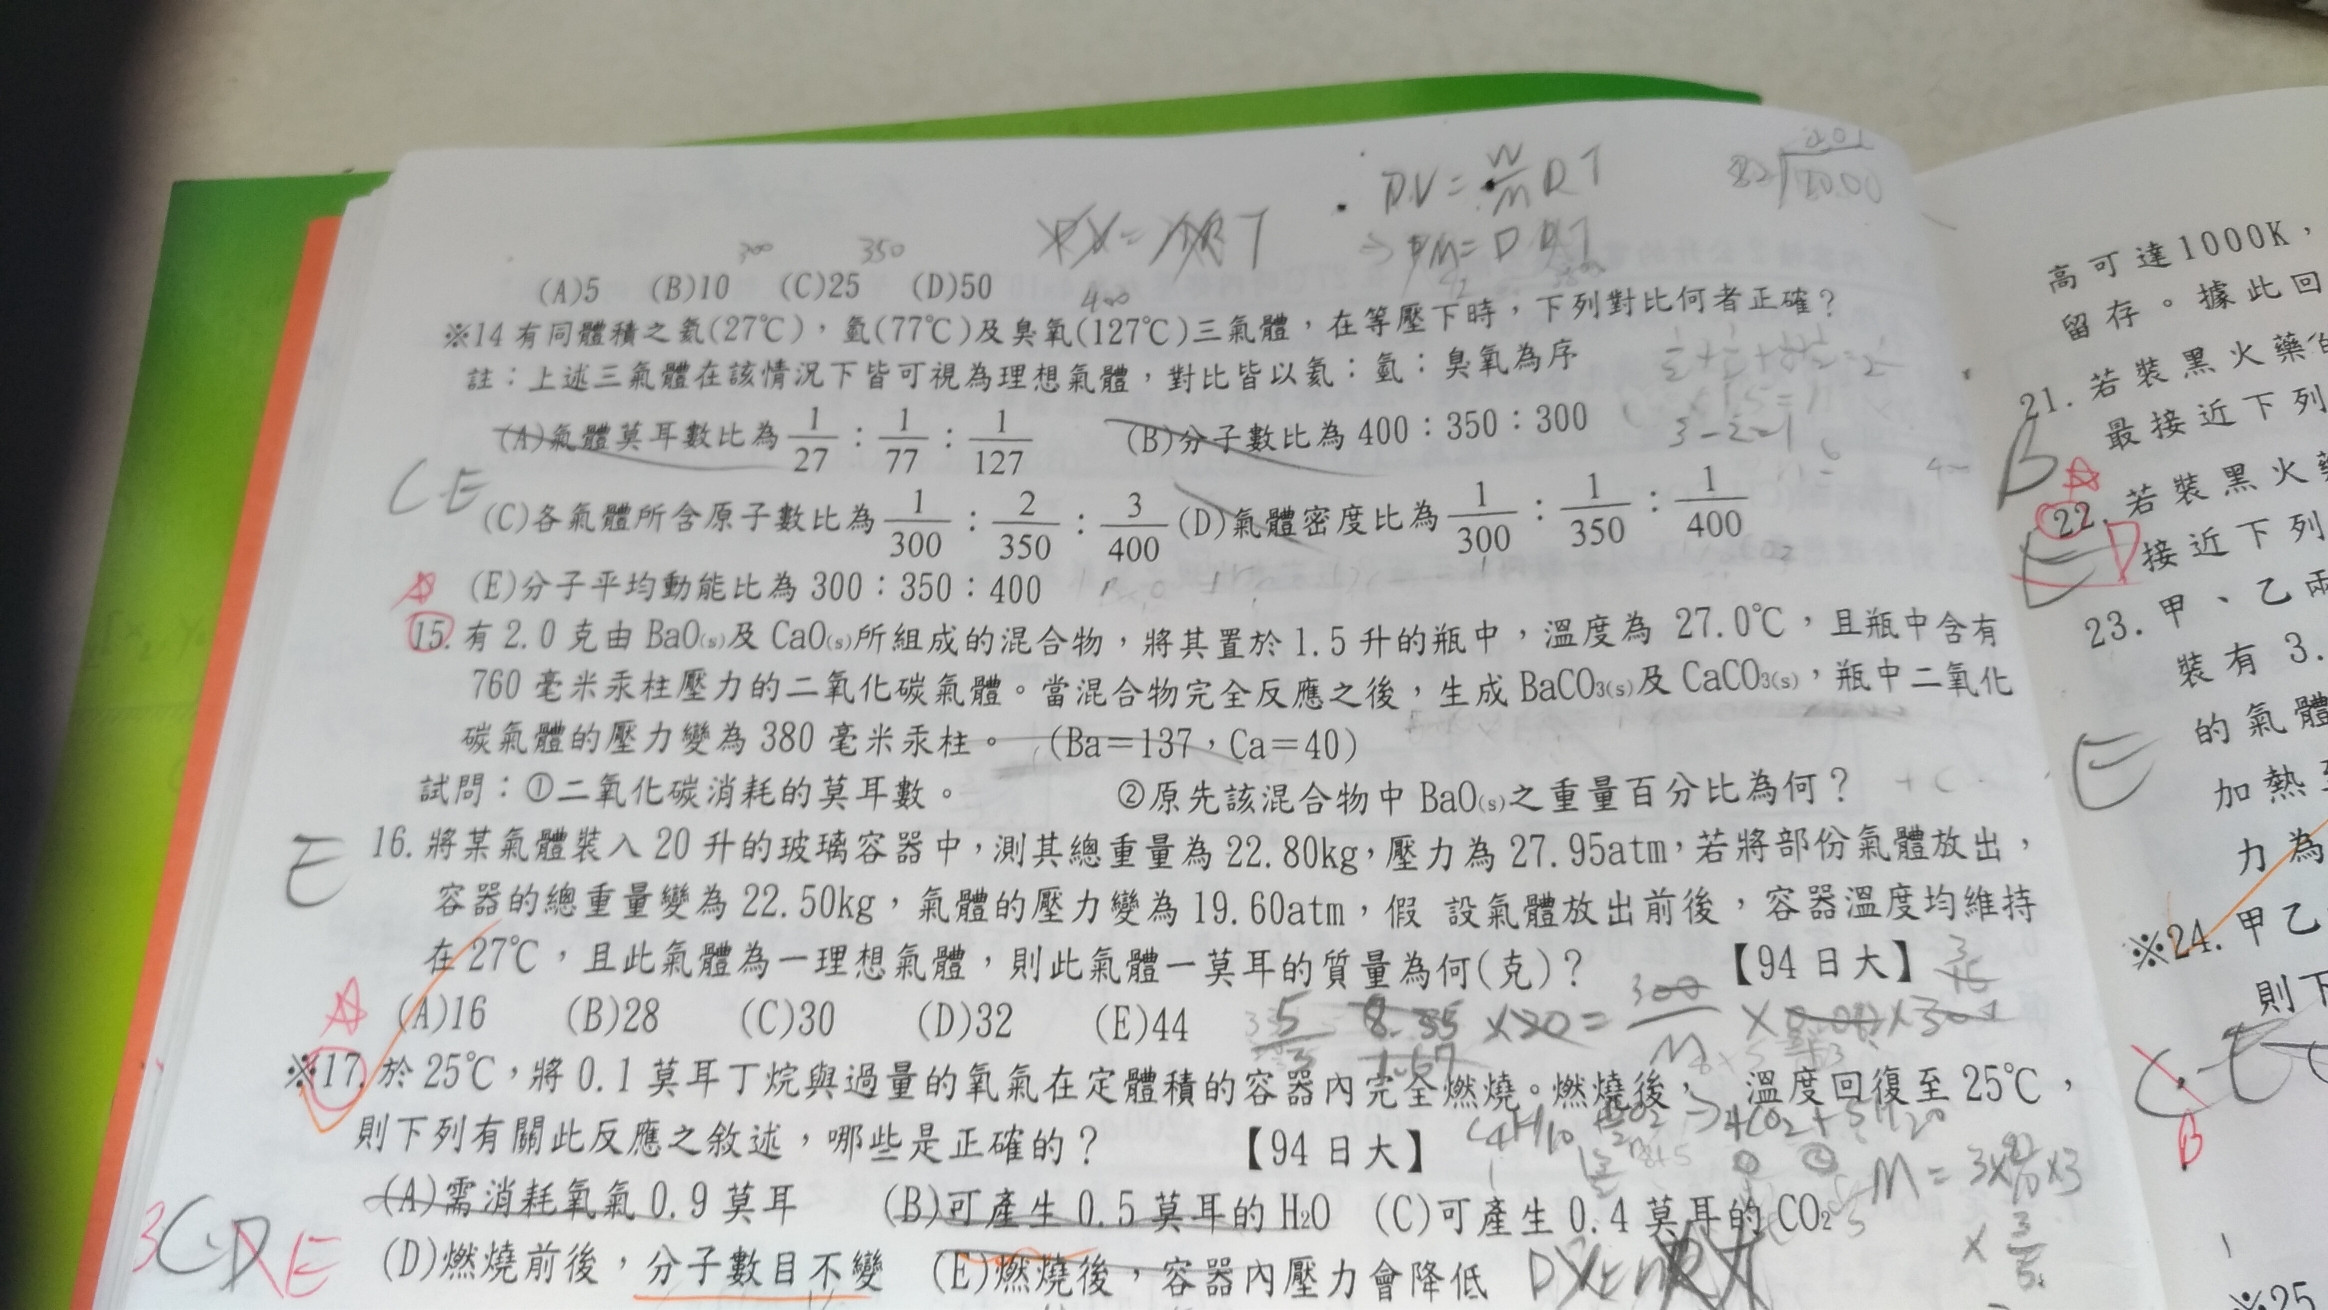 PV=W/M RT
PM=DRT
300 350
(A)5 (B)10 (C)25 (D)50
400
※14有同體積之氦(27℃),氫(77℃)及臭氧(127℃)三氣體,在等壓下時,下列對比何者正確?
註:上述三氣體在該情況下皆可視為理想氣體,對比皆以氦:氫:臭氧為序
(A)氣體莫耳數比為 1/27 : 1/77 : 1/127 (B)分子數比為 400:350:300
CE
(C)各氣體所含原子數比為 1/300 : 2/350 : 3/400 (D)氣體密度比為 1/300 : 1/350 : 1/400
(E)分子平均動能比為 300:350:400
15.有 2.0 克由 BaO(s)及 CaO(s)所組成的混合物,將其置於 1.5 升的瓶中,溫度為 27.0℃,且瓶中含有
760 毫米汞柱壓力的二氧化碳氣體。當混合物完全反應之後,生成 BaCO3(s)及 CaCO3(s),瓶中二氧化
碳氣體的壓力變為 380 毫米汞柱。 (Ba=137,Ca=40)
試問:①二氧化碳消耗的莫耳數。 ②原先該混合物中 BaO(s)之重量百分比為何?
E
16.將某氣體裝入 20 升的玻璃容器中,測其總重量為 22.80kg,壓力為 27.95atm,若將部份氣體放出,
容器的總重量變為 22.50kg,氣體的壓力變為 19.60atm,假 設氣體放出前後,容器溫度均維持
在 27℃,且此氣體為一理想氣體,則此氣體一莫耳的質量為何(克)? 【94 日大】
(A)16 (B)28 (C)30 (D)32 (E)44
※17.於 25℃,將 0.1 莫耳丁烷與過量的氧氣在定體積的容器內完全燃燒。燃燒後, 溫度回復至 25℃,
則下列有關此反應之敘述,哪些是正確的? 【94 日大】
(A)需消耗氧氣 0.9 莫耳 (B)可產生 0.5 莫耳的 H2O (C)可產生 0.4 莫耳的 CO2
(D)燃燒前後,分子數目不變 (E)燃燒後,容器內壓力會降低
高可達1000K,
留存。據此回
21.若裝黑火藥
最接近下列
B
22.若裝黑火
接近下列
23.甲、乙兩
裝有 3.
的氣體
E
加熱
力為
※24.甲乙
則下
B
※25